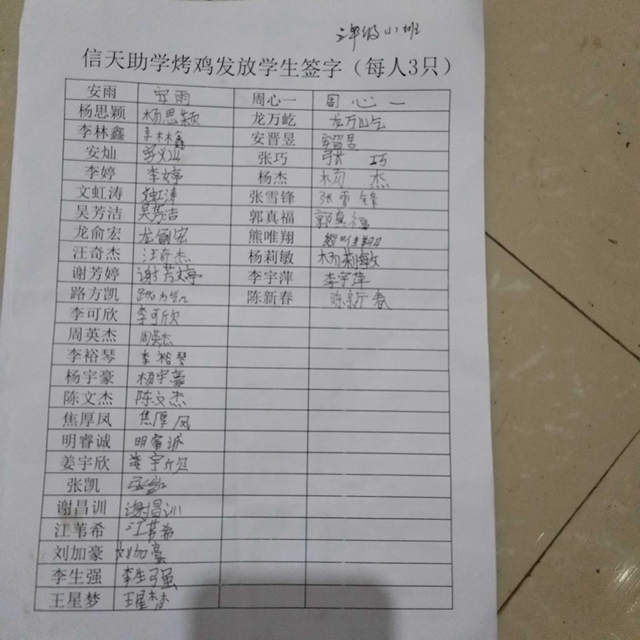 信天助学烤鸡发放学生签字（每人3只）
安雨 安雨 周心一 周心一
杨思颖 杨思颖 龙万屹 龙万屹
李林鑫 李林鑫 安晋昱 安晋昱
安灿 安灿 张巧 张巧
李婷 李婷 杨杰 杨杰
文虹涛 张雪锋 张雪锋
吴芳洁 吴芳洁 郭真福 郭真福
龙俞宏 龙俞宏 熊唯翔 熊唯翔
汪奇杰 汪奇杰 杨莉敏 杨莉敏
谢芳婷 谢芳婷 李宇萍 李宇萍
路方凯 路方凯 陈新春 陈新春
李可欣 李可欣
周英杰 周英杰
李裕琴 李裕琴
杨宇豪 杨宇豪
陈文杰 陈文杰
焦厚凤 焦厚凤
明睿诚 明睿诚
姜宇欣 姜宇欣
张凯
谢昌训 谢昌训
江苇希 江苇希
刘加豪 刘加豪
李生强 李生强
王星梦 王星梦